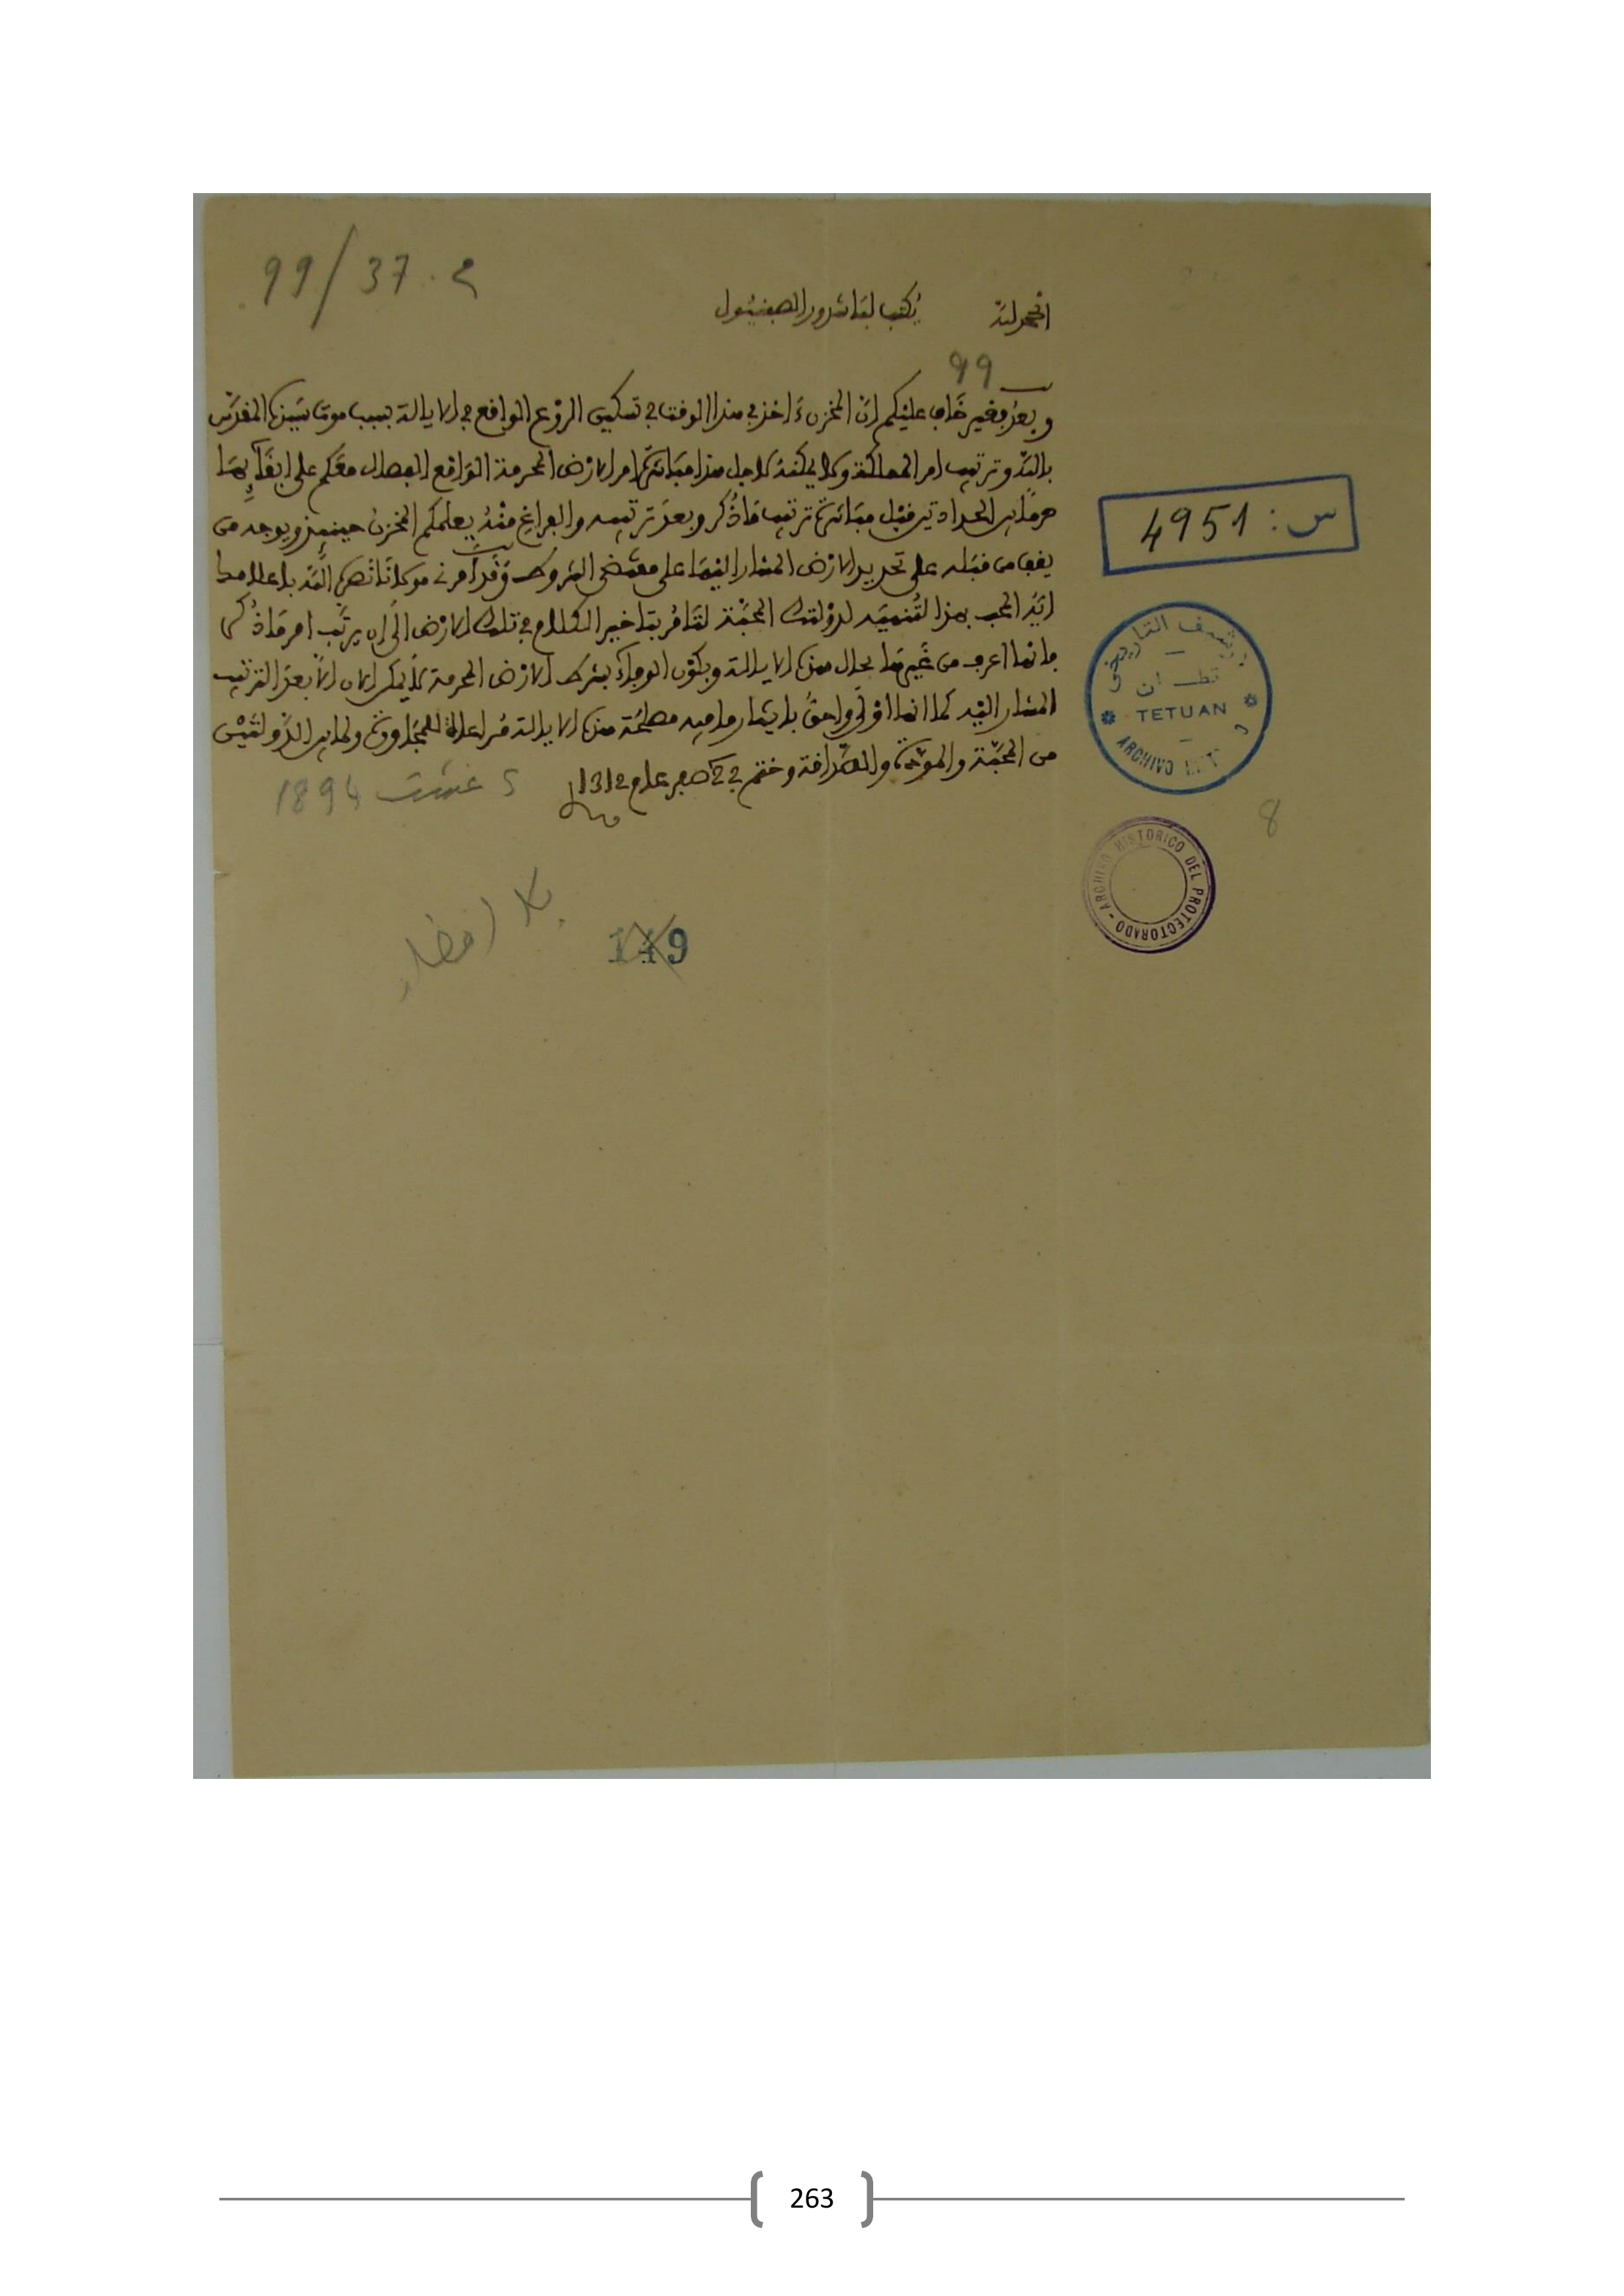 99/37.م
الحمد لله يكتب لباشدور الصبنيول
99
وبعد فغير خاف عليكم ان المخزن ءاخذ في هذا الوقت في تسكين الروع الواقع في الايالة بسبب موت سيدنا المقدس
بالله وترتيب امر المملكة ولا يمكنه لاجل هذا مباشرة امر الارض المحرمة الواقع الفصال معكم على ابقائها
حرما بين الحدادتين قبل مباشرة ترتيب ما ذكر وبعد ترتيبه والفراغ منه يعلمكم المخزن حينئذ ويوجه من
يقف من قبله على تحديد الارض المشار اليها على مقتضى الشروط وقد امرني مولانا نصره الله باعلامكم
المحب بهذا لدولتك المحبة لتامر بتاخير الكلام في تلك الارض الى ان يرتب امر ما ذكر
فانها اعرف من غيرها بحال هذه الايالة وبكون الوفاء بشرط الارض المحرمة لا يمكن الان الا بعد الترتيب
المشار اليه كما انها اولى واحق بايثار ما فيه مصلحة هذه الايالة مراعاة للمجاورة ولما بين الدولتين
من المحبة والمودة والصداقة وختم في 2 صفر عام 1312
5 غشت 1894
بلا امضاء
149
س : 4951
تطـــوان
TETUAN
ARCHIVO
8
ARCHIVO HISTORICO DEL PROTECTORADO
263